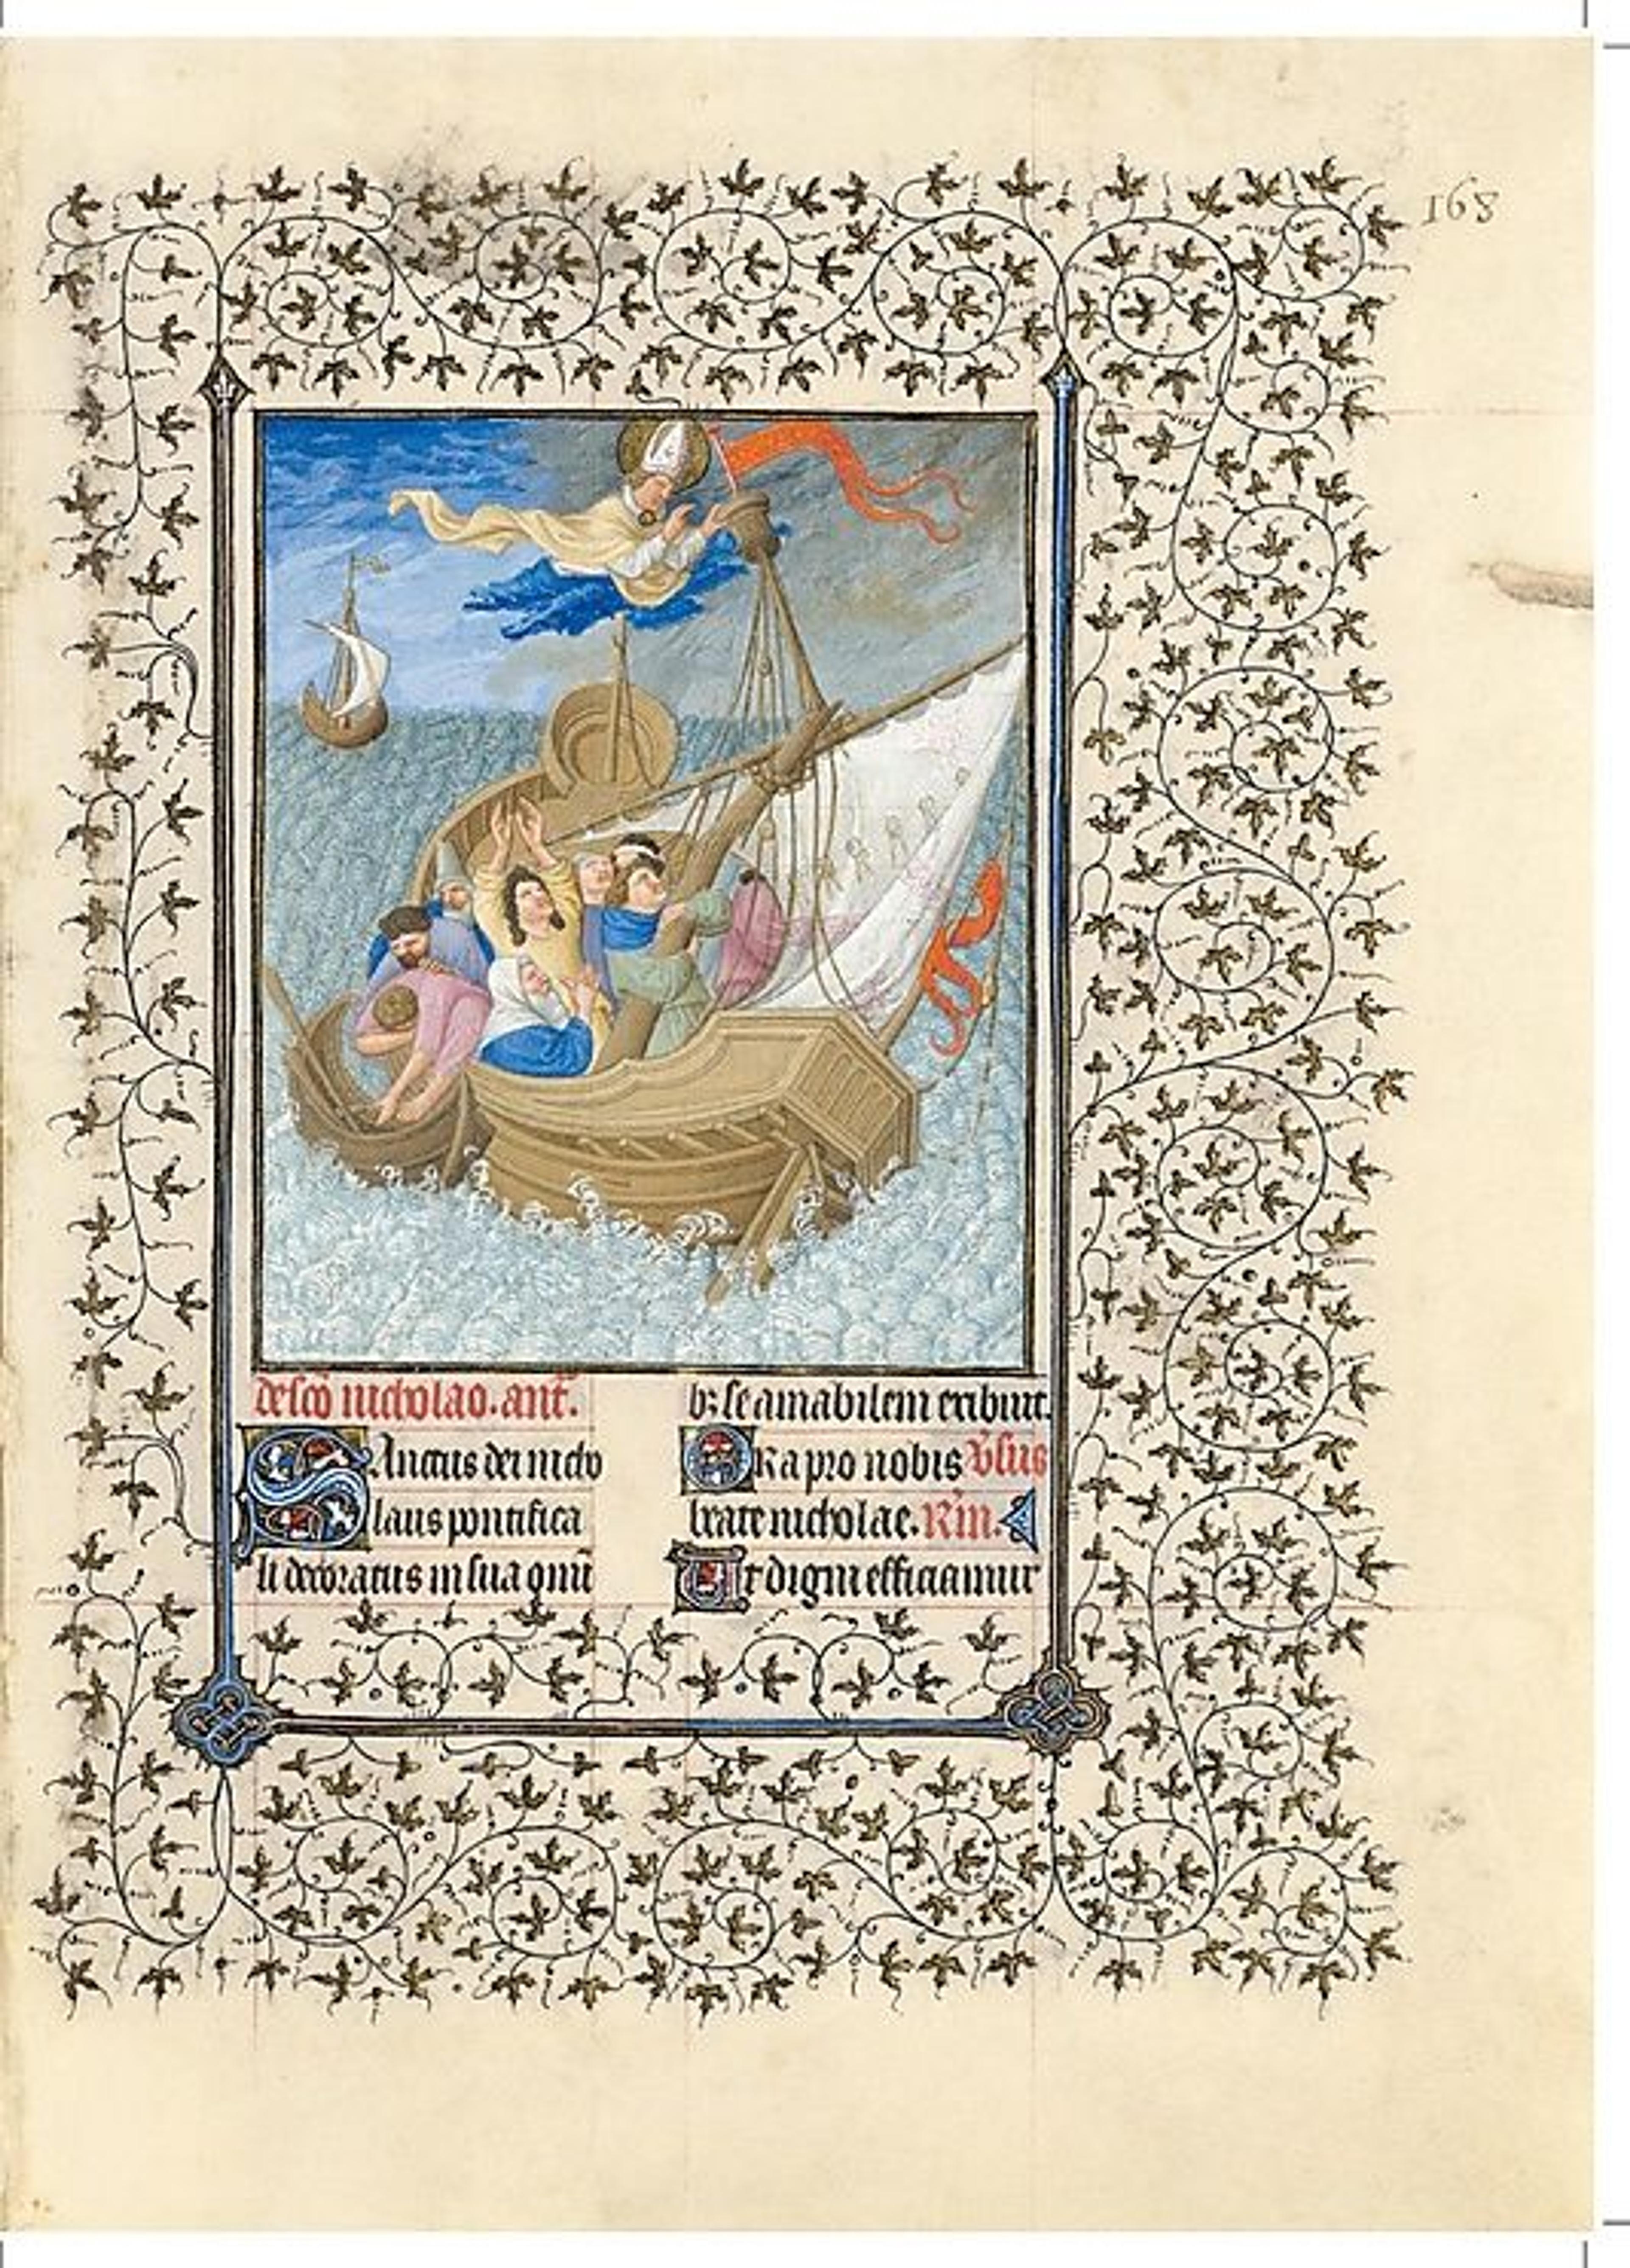 168
de sc̄o nicholao. ant̄.
Sanctus dei nicho
laus pontifica
li decoratus infula om̄i
b; se amabilem exibuit.
Ora pro nobis v̄sus
beate nicholae. R̄m.
Ut digni efficiamur